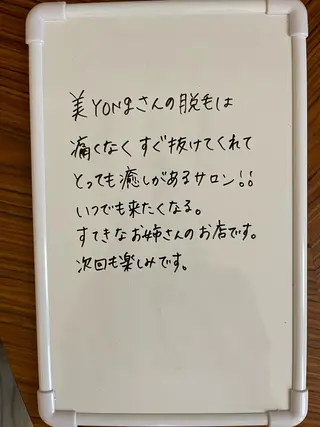 美YONgさんの脱毛は
痛くなく すぐ抜けてくれて
とっても癒しがあるサロン!!
いつでも来たくなる。
すてきなお姉さんのお店です。
次回も楽しみです。